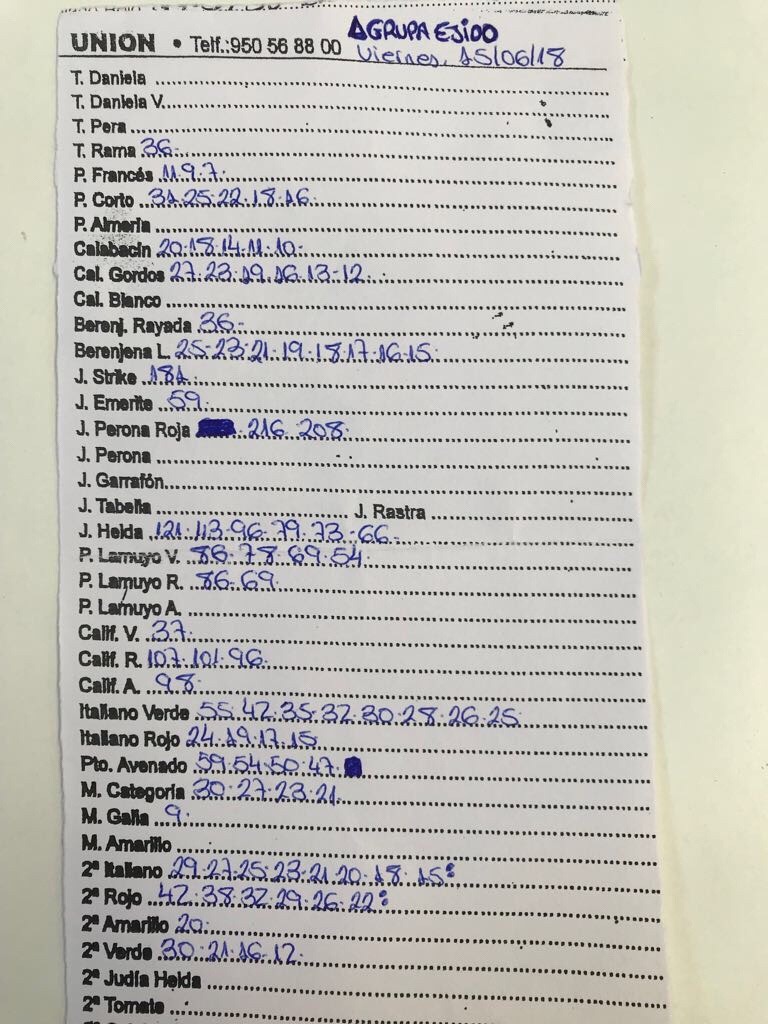 UNION • Telf.: 950 56 88 00 AGRUPAEJIDO
Viernes, 15/06/18
T. Daniela
T. Daniela V.
T. Pera
T. Rama 36
P. Francés 11.9.7
P. Corto 31.25.22.18.16
P. Almeria
Calabacín 20.18.14.11.10
Cal. Gordos 27.23.19.16.13.12
Cal. Blanco
Berenj. Rayada 36
Berenjena L. 25.23.21.19.18.17.16.15
J. Strike 181
J. Emerite 59
J. Perona Roja 216.208
J. Perona
J. Garrafón
J. Tabella J. Rastra
J. Helda 121.113.96.79.73.66
P. Lamuyo V. 86.78.69.54
P. Lamuyo R. 86.69
P. Lamuyo A.
Calif. V. 37
Calif. R. 107.101.96
Calif. A. 98
Italiano Verde 55.42.35.32.30.28.26.25
Italiano Rojo 24.19.17.15
Pto. Avenado 59.54.50.47
M. Categoría 30.27.23.21
M. Galia 9
M. Amarillo
2ª Italiano 29.27.25.23.21.20.18.15
2ª Rojo 42.38.32.29.26.22
2ª Amarillo 20
2ª Verde 30.21.16.12
2ª Judía Helda
2ª Tomate